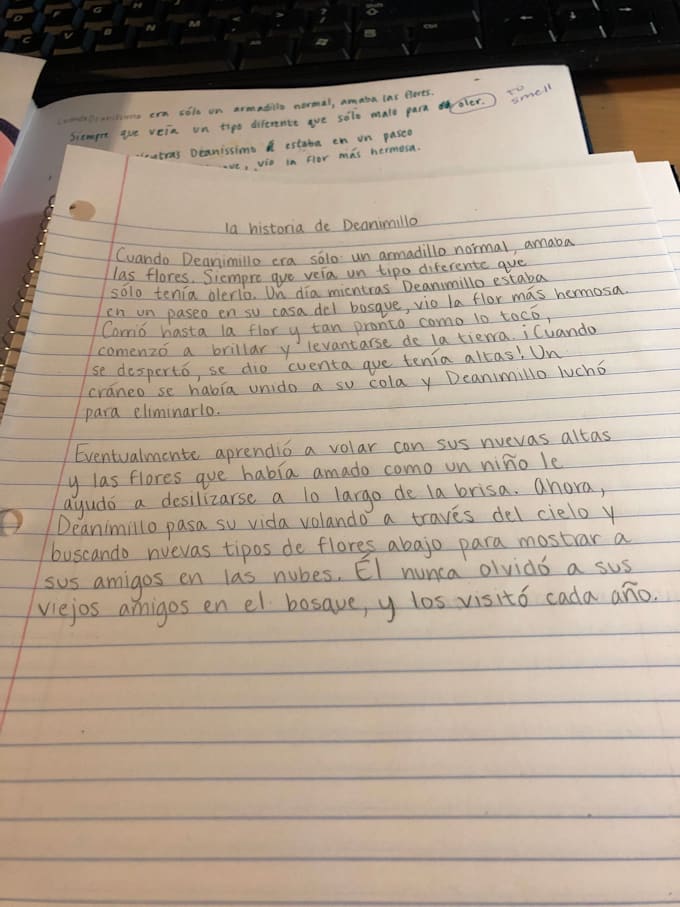 era sólo un armadillo normal, amaba las flores.
Siempre que veía un tipo diferente que sólo malo para oler.
to smell
Deanissimo estaba en un paseo
vio la flor más hermosa.
la historia de Deanimillo
Cuando Deanimillo era sólo un armadillo normal, amaba
las flores. Siempre que veía un tipo diferente que
sólo tenía olerlo. Un día mientras Deanimillo estaba
en un paseo en su casa del bosque, vio la flor más hermosa.
Corrió hasta la flor y tan pronto como lo tocó,
comenzó a brillar y levantarse de la tierra. ¡Cuando
se despertó, se dio cuenta que tenía altas! Un
cráneo se había unido a su cola y Deanimillo luchó
para eliminarlo.
Eventualmente aprendió a volar con sus nuevas altas
y las flores que había amado como un niño le
ayudó a desilizarse a lo largo de la brisa. Ahora,
Deanimillo pasa su vida volando a través del cielo y
buscando nuevas tipos de flores abajo para mostrar a
sus amigos en las nubes. Él nunca olvidó a sus
viejos amigos en el bosque, y los visitó cada año.